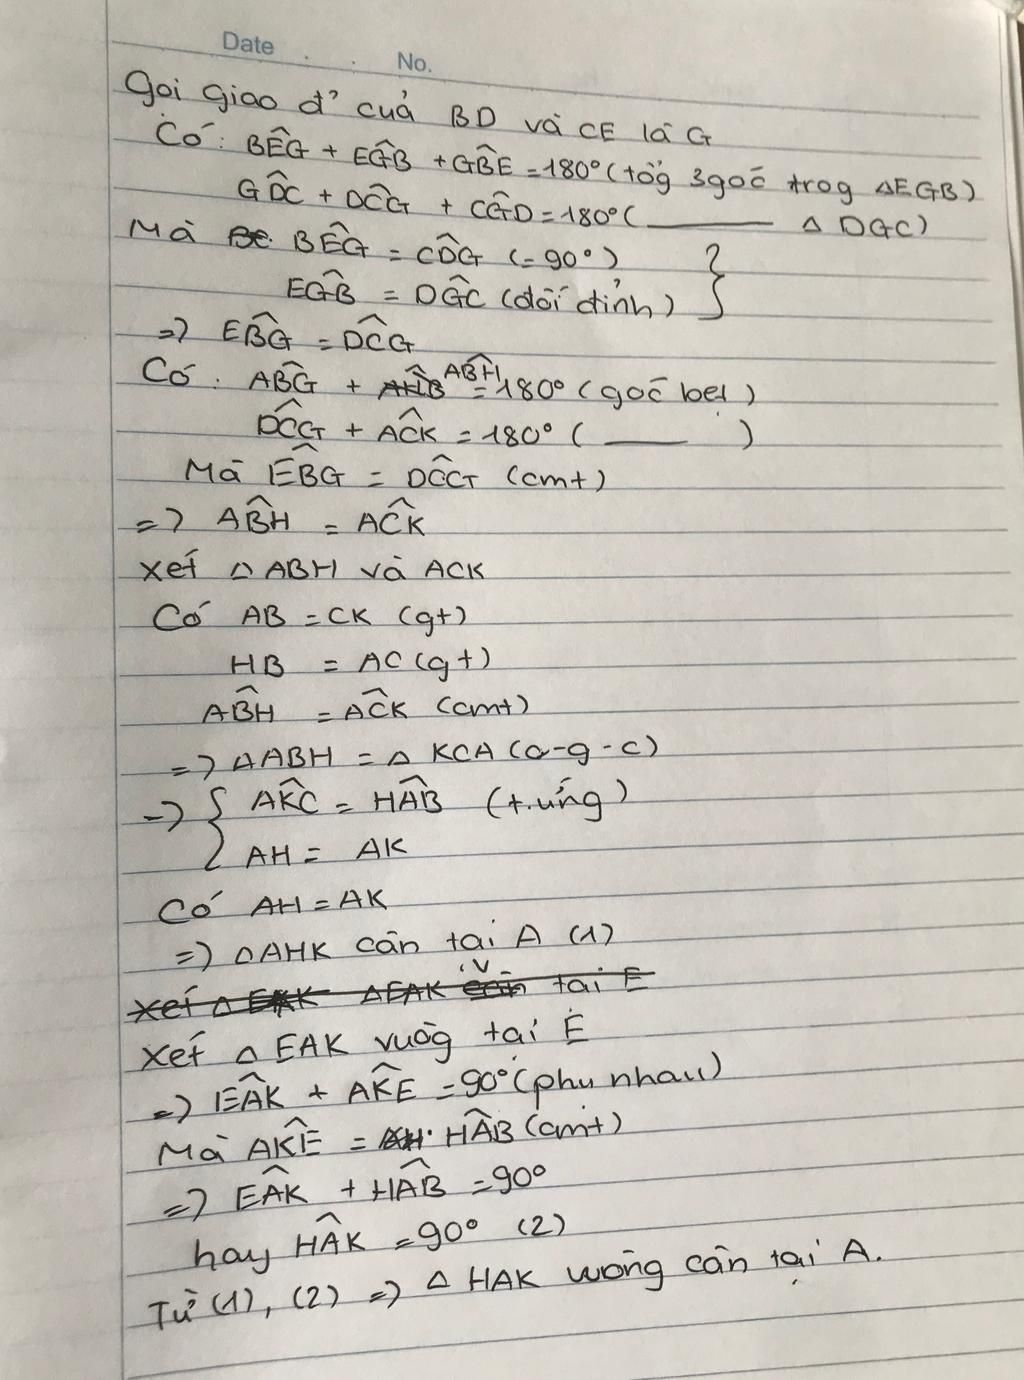 Date . . No.
Gọi giao đ' của BD và CE là G
Có: BÊG + EĜB + GB̂E = 180° (tổg 3 góc trog ΔEGB)
GD̂C + DĈG + CĜD = 180° ( ——— Δ DGC)
Mà BÊG = CD̂G (= 90°)
EĜB = DĜC (đối đỉnh) }
=> EB̂G = DĈG
Có: AB̂G + AB̂H = 180° (góc bẹt)
DĈG + AĈK = 180° ( ——— )
Mà EB̂G = DĈG (cmt)
=> AB̂H = AĈK
Xét Δ ABH và ACK
Có AB = CK (gt)
HB = AC (gt)
AB̂H = AĈK (cmt)
=> ΔABH = Δ KCA (c-g-c)
=> { AK̂C = HÂB (t.ứng)
AH = AK
Có AH = AK
=> ΔAHK cân tại A (1)
Xét Δ EAK vuôg tại E
=> EÂK + AK̂E = 90° (phụ nhau)
Mà AK̂E = HÂB (cmt)
=> EÂK + HÂB = 90°
hay HÂK = 90° (2)
Từ (1), (2) => Δ HAK vuông cân tại A.